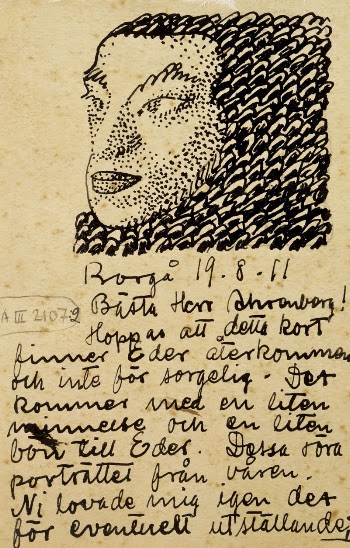 Borgå 19.8.11
Bästa Herr Ahrenberg!
A III 21072
Hoppas att detta kort
finner Eder återkommen
och inte för sorgelig. Det
kommer med en liten
bön till Eder. Dessa röra
porträttet från våren.
Ni lovade mig igen det
för eventuelt utställande,